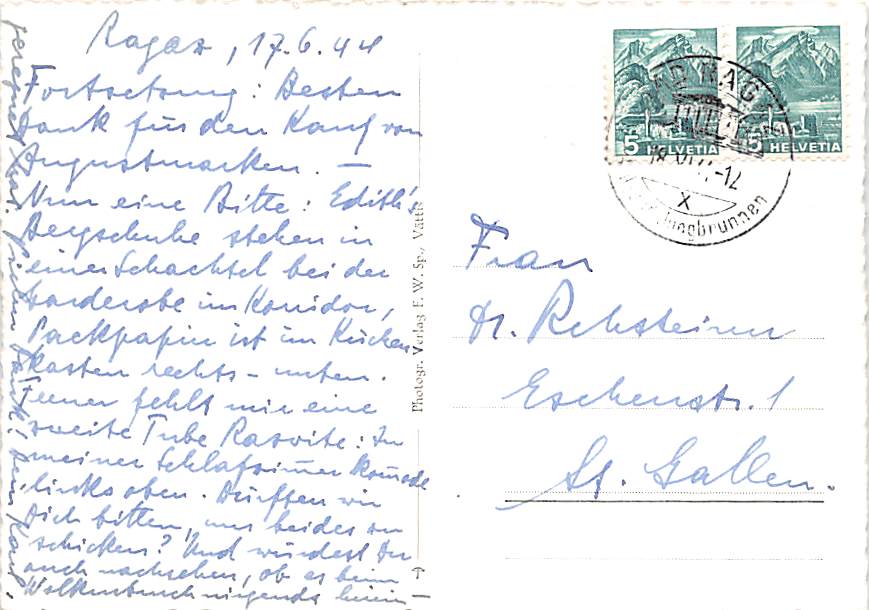 Ragaz, 17.6.44
Fortsetzung: Besten
Dank für den Kauf von
Augustmarken. —
Nun eine Bitte: Edith's
Bergschuhe stehen in
einer Schachtel bei der
Garderobe im Korridor,
Packpapier ist im Küchen
kasten rechts - unten.
Ferner fehlt mir eine
zweite Tube Rasvite: In
meiner Schlafzimmer komode
links oben. Dürften wir
Dich bitten, uns beides zu
schicken? Und würdest Du
auch nachsehen, ob es beim
Wolkenbruch nirgends hinein-
geregnet hat. Vielen Dank!
Photogr. Verlag F. W. Sp., Vättis
5 HELVETIA
5 HELVETIA
BAD RAGAZ
-12
X
Jungbrunnen
Frau
Dr. Rehsteiner
Eschenstr. 1
St. Gallen.